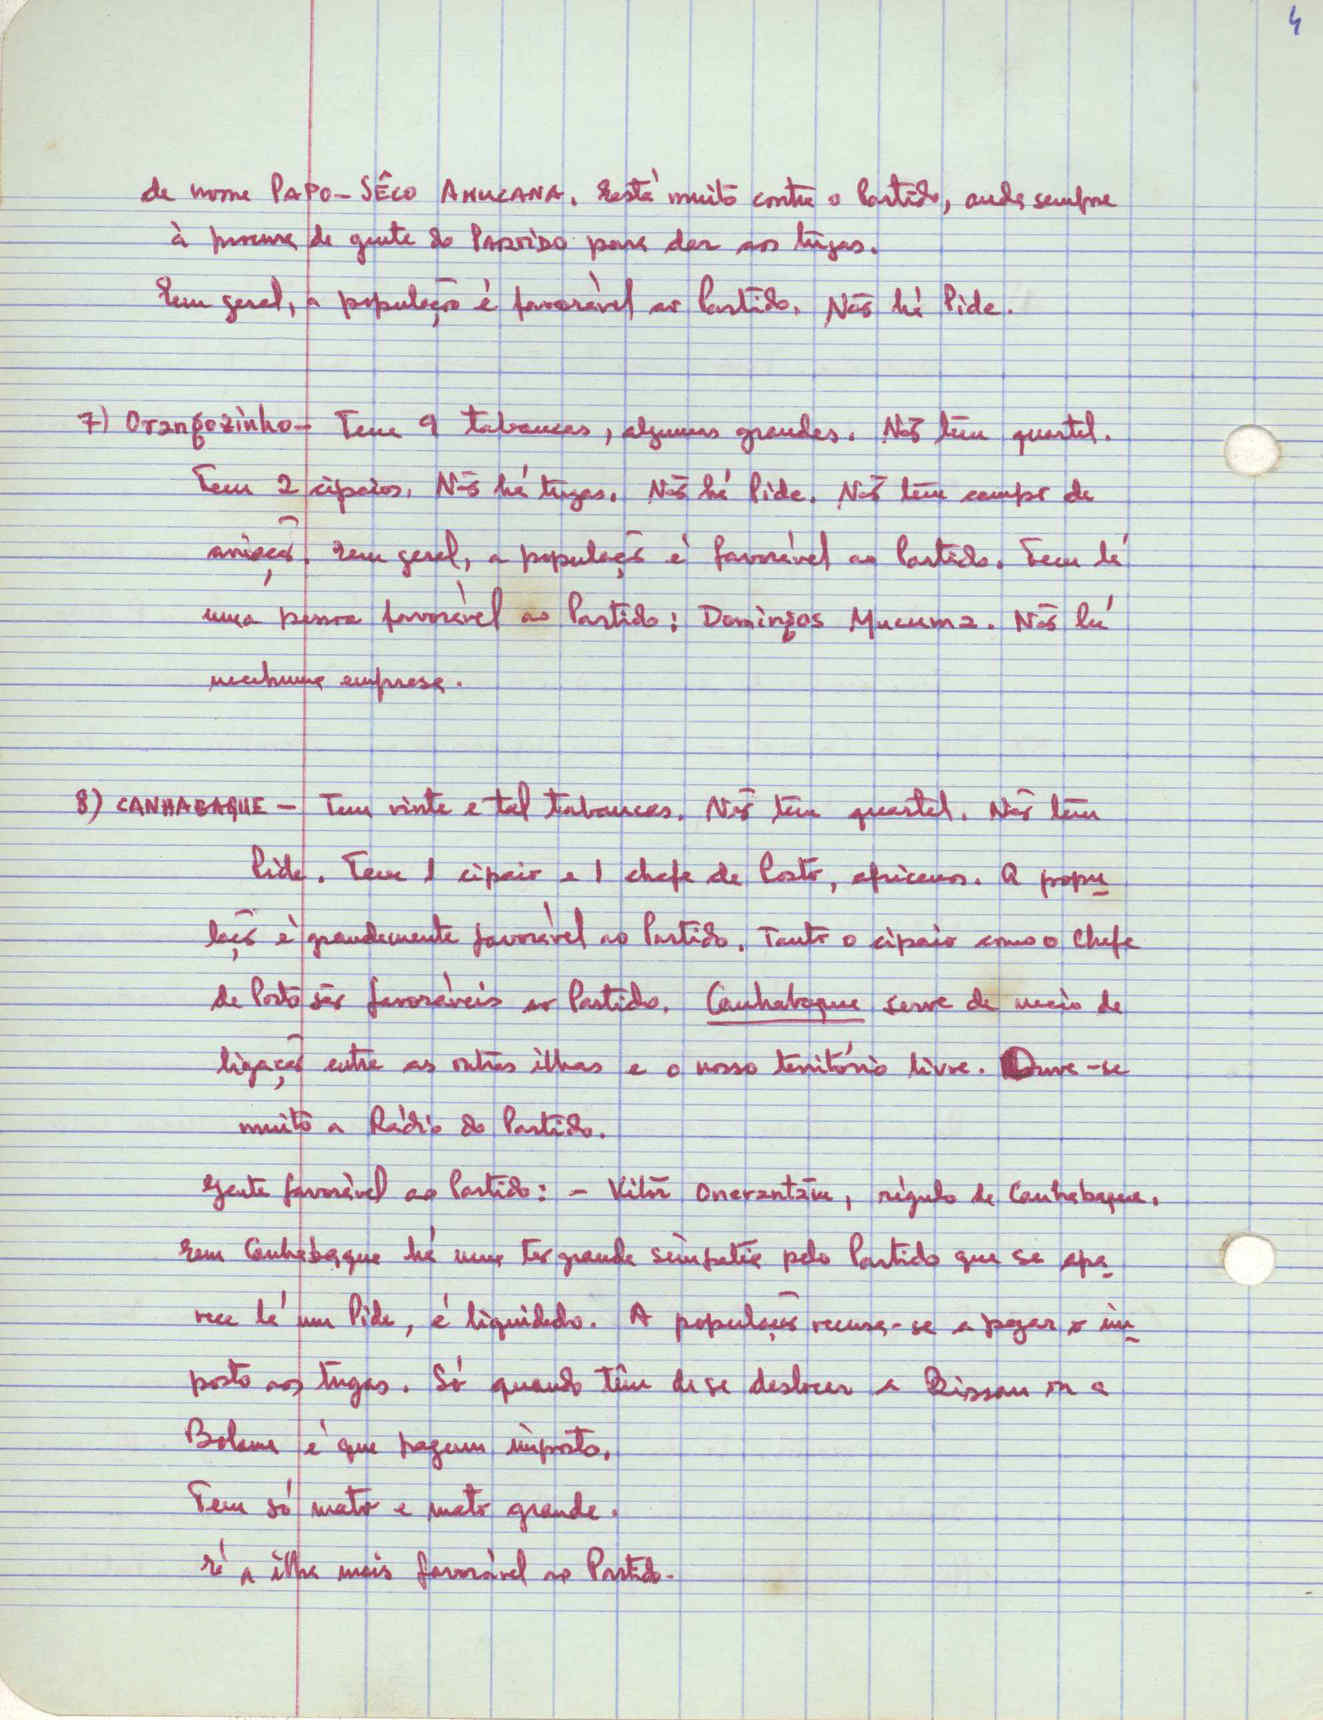 4
de nome PAPO-SÊCO AMUCANA. Está muito contra o Partido, anda sempre
à procura de gente do PARTIDO para dar aos tugas.
Em geral, a população é favorável ao Partido. Não há Pide.
7) Orangozinho - Tem 9 tabancas, algumas grandes. Não têm quartel.
Tem 2 cipaios. Não há tugas. Não há Pide. Não têm campo de
aviação. Em geral, a população é favorável ao Partido. Tem lá
uma pessoa favorável ao Partido: Domingos Mucuma. Não há
nenhuma empresa.
8) CANHABAQUE - Tem vinte e tal tabancas. Não têm quartel. Não têm
Pide. Tem 1 cipaio e 1 chefe de Posto, africanos. A popu-
lação é grandemente favorável ao Partido. Tanto o cipaio como o Chefe
de Posto são favoráveis ao Partido. Canhabaque serve de meio de
ligação entre as outras ilhas e o nosso território livre. Ouve-se
muito a Rádio do Partido.
Gente favorável ao Partido: - Vitôr Onerantám, régulo de Canhabaque.
Em Canhabaque há uma tão grande simpatia pelo Partido que se apa-
rece lá um Pide, é liquidado. A população recusa-se a pagar o im-
posto aos tugas. Só quando têm de se deslocar a Bissau ou a
Bolama é que pagam imposto.
Tem só mato e mato grande.
É a ilha mais favorável ao Partido.